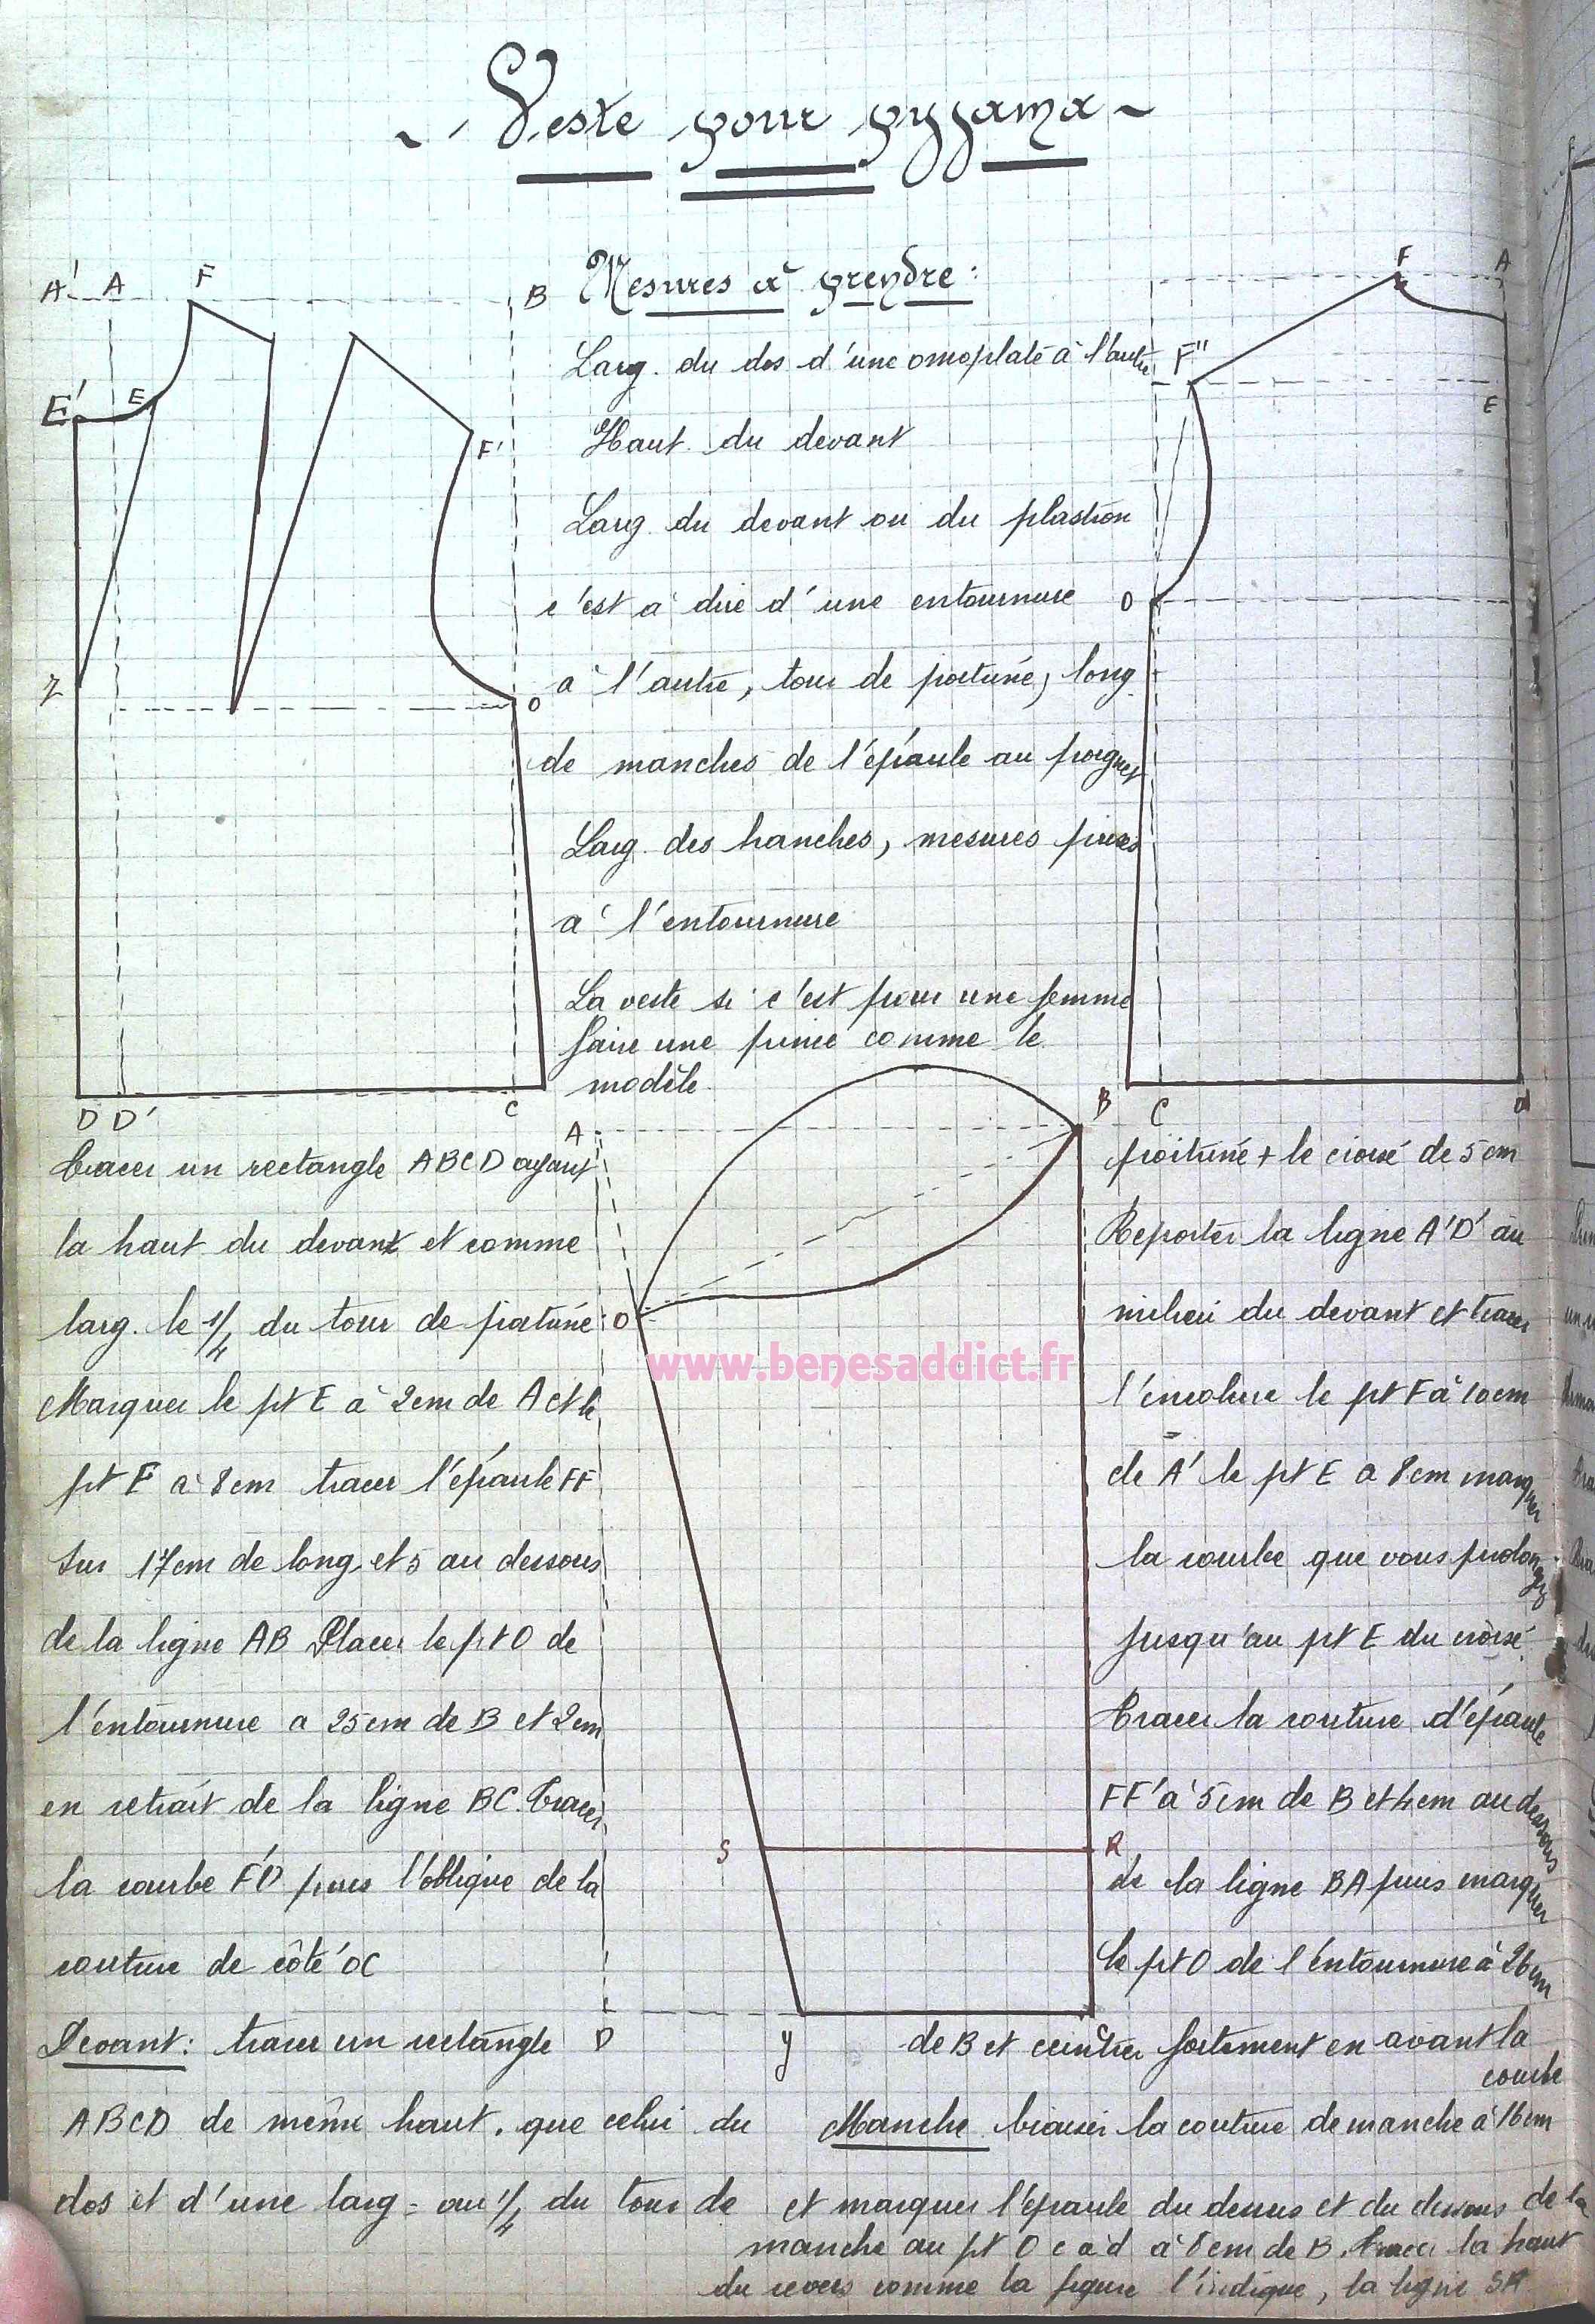 Veste pour pyjama
Mesures à prendre :
Larg. du dos d'une omoplate à l'autre
Haut. du devant
Larg. du devant ou du plastron
c'est à dire d'une entournure
à l'autre, tour de poitrine, long.
de manches de l'épaule au poignet
Larg. des hanches, mesures prises
à l'entournure
La veste si c'est pour une femme
faire une pince comme le
modèle.
A' A F B
E' E F'
Z O
D D' C
F A
F'' E
O
C d
A B
O
S R
D y C
Tracer un rectangle ABCD ayant
la haut. du devant et comme
larg. le 1/4 du tour de poitrine
Marquer le pt E à 2cm de A et le
pt F à 8cm tracer l'épaule FF
sur 17cm de long. et 5 au dessous
de la ligne AB Placer le pt O de
l'entournure a 25cm de B et 2cm
en retrait de la ligne BC. Tracer
la courbe F'O puis l'oblique de la
couture de côté OC
Devant : tracer un rectangle
ABCD de même haut. que celui du
dos et d'une larg = au 1/4 du tour de
poitrine + le croisé de 5cm
Reporter la ligne A'D' au
milieu du devant et tracer
l'encolure le pt F à 10cm
de A' le pt E a 8cm marquer
la courbe que vous prolongez
jusqu'au pt E du croisé.
Tracer la couture d'épaule
FF' à 5cm de B et 4cm au dessous
de la ligne BA puis marquer
le pt O de l'entournure à 26cm
de B et ceintrer fortement en avant la
courbe
Manche biaiser la couture de manche à 16cm
et marquer l'épaule du dessus et du dessous de la
manche au pt O c à d à 8cm de B. Tracer la haut
du revers comme la figure l'indique, la ligne SR
www.benesaddict.fr